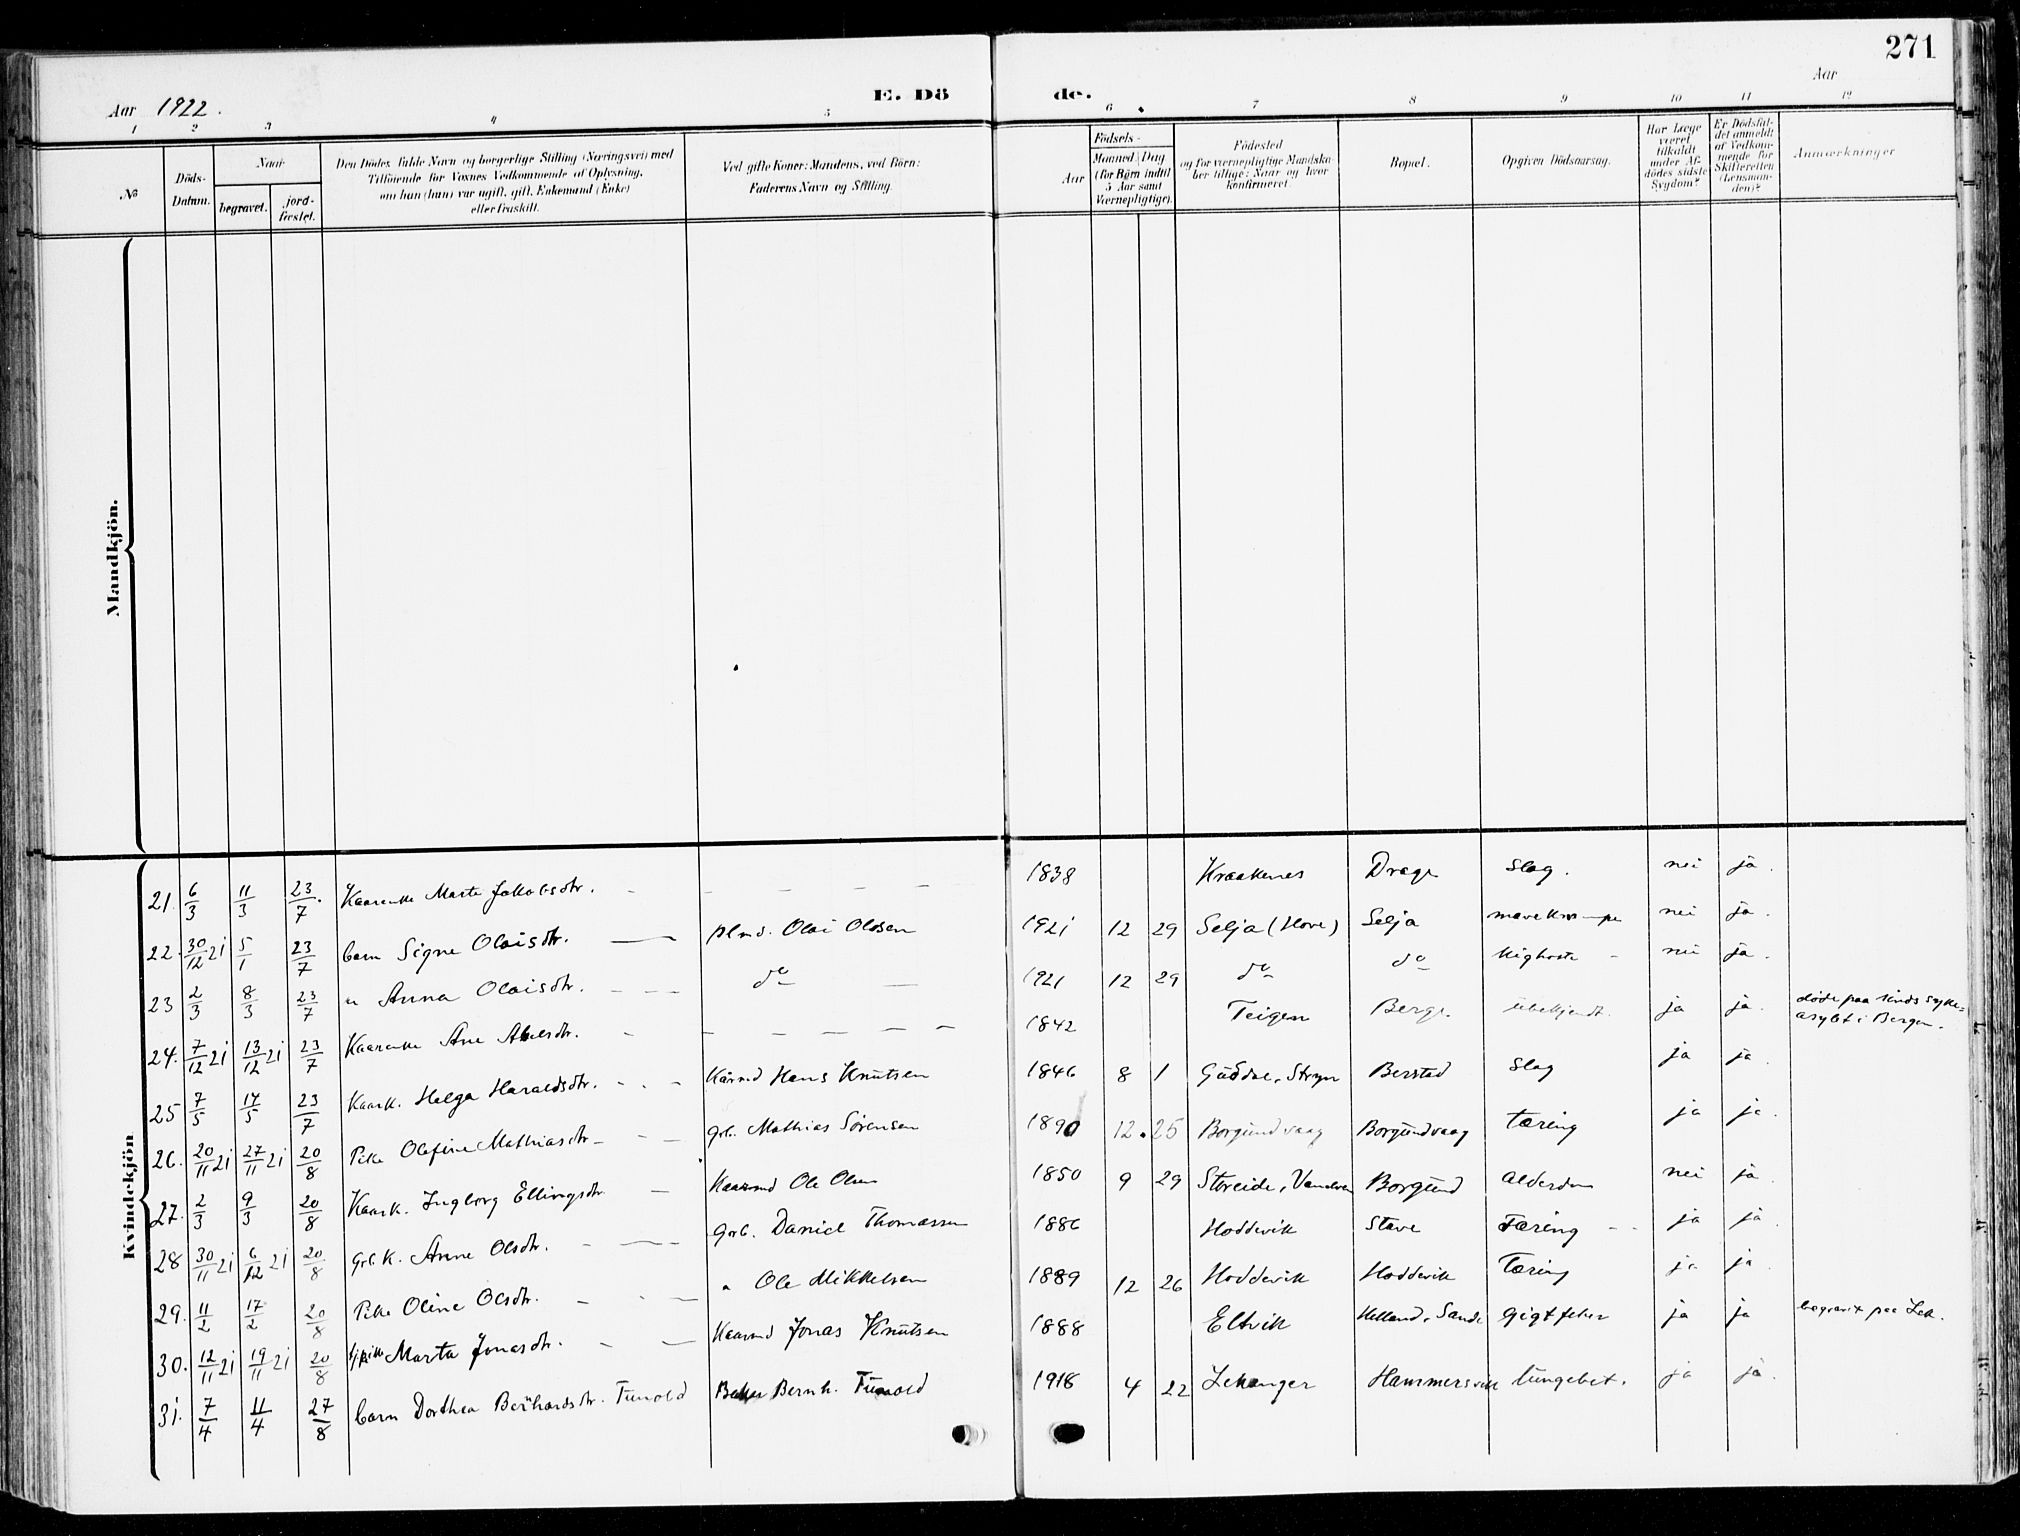 271
Aar 1922.
E. Dö de.
Aar
1 2 3 4 5 6 7 8 9 10 11 12
No
Döds-Datum.
Naar
begravet.
jord-fæstet.
Den Dödes fulde Navn og borgerlige Stilling (Næringsvei) med Tilföiende for Voxnes Vedkommende af Oplysning, om han (hun) var ugift, gift, Enkemand (Enke) eller fraskilt.
Ved gifte Koner: Mandens, ved Börn: Faderens Navn og Stilling.
Födsels-
Aar
Maaned Dag (for Börn indtil 5 Aar samt Værnepligtige).
Födested og for værnepligtige Mandskaber tillige: Naar og hvor konfirmeret.
Bopæl.
Opgiven Dödsaarsag.
Har Læge været tilkaldt under Afdödes sidste Sygdom?
Er Dödsfaldet anmeldt af Vedkommende for Skifteretten (Lensmanden)?
Anmærkninger
Mandkjön.
Kvindekjön
21. 6/3 11/3 23/7. Kaarenke Marte Jakobsdtr. - - - - - - 1838 Kraakenes Drage Slag. nei ja.
22. 30/12 21 5/1 23/7 barn Signe Olaisdtr. — Olai Olsen 1921 12 29 Selje (Hove) Selja nei ja.
23 2/3 8/3 23/7 " Anna Olaisdtr. - - - do — 1921 12 29 do do Kighoste - nei ja.
24. 7/12 21 13/12 21 23/7 Kaarenke Ane Abelsdtr. - - - - - - 1842 Teigen Berge. ubekjendt. ja ja. döde paa sinds syke=asylet i Bergen.
25 7/5 14/5 23/7 Kaark. Helga Haraldsdtr. - - - Kårmd Hans Knutsen 1846 8 1 Guddal, Stryn Berstad Slag ja ja.
26. 20/11 21 27/11 21 20/8 Pike Olefine Mathiasdtr - - - Grb. Mathias Sörensen 1890 12. 25 Borgundvaag Borgundvaag Tæring ja ja.
27. 2/3 9/3 20/8 Kaark. Ingborg Ellingsdtr. — Kaarmd Ole Olsen 1850 9 29 Storeide, Vandven Borgund Alderdom nei ja.
28 30/11 21 6/12 21 20/8 Grb.k. Anne Olsdtr. - — Grb. Daniel Thomassen 1886 Hoddevik Stave Tæring - - ja ja.
29. 11/2 17/2 20/8 Pike Oline Olsdtr. - - — " Ole Mikkelsen 1889 12 26 Hoddevik Hoddevik Tæring ja ja.
30. 12/11 21 19/11 21 20/8 Marta Jonasdtr. - — Kaarmd Jonas Knutsen 1888 Eltvik Helland, Sande Gigtfeber ja ja begravet paa Lek.
31. 7/4 11/4 27/8 barn Dorthea Bernhardsdtr. Tunold Baker Bernh. Tunold 1918 4 22 Lekanger Hammersvik lungebet. ja ja.